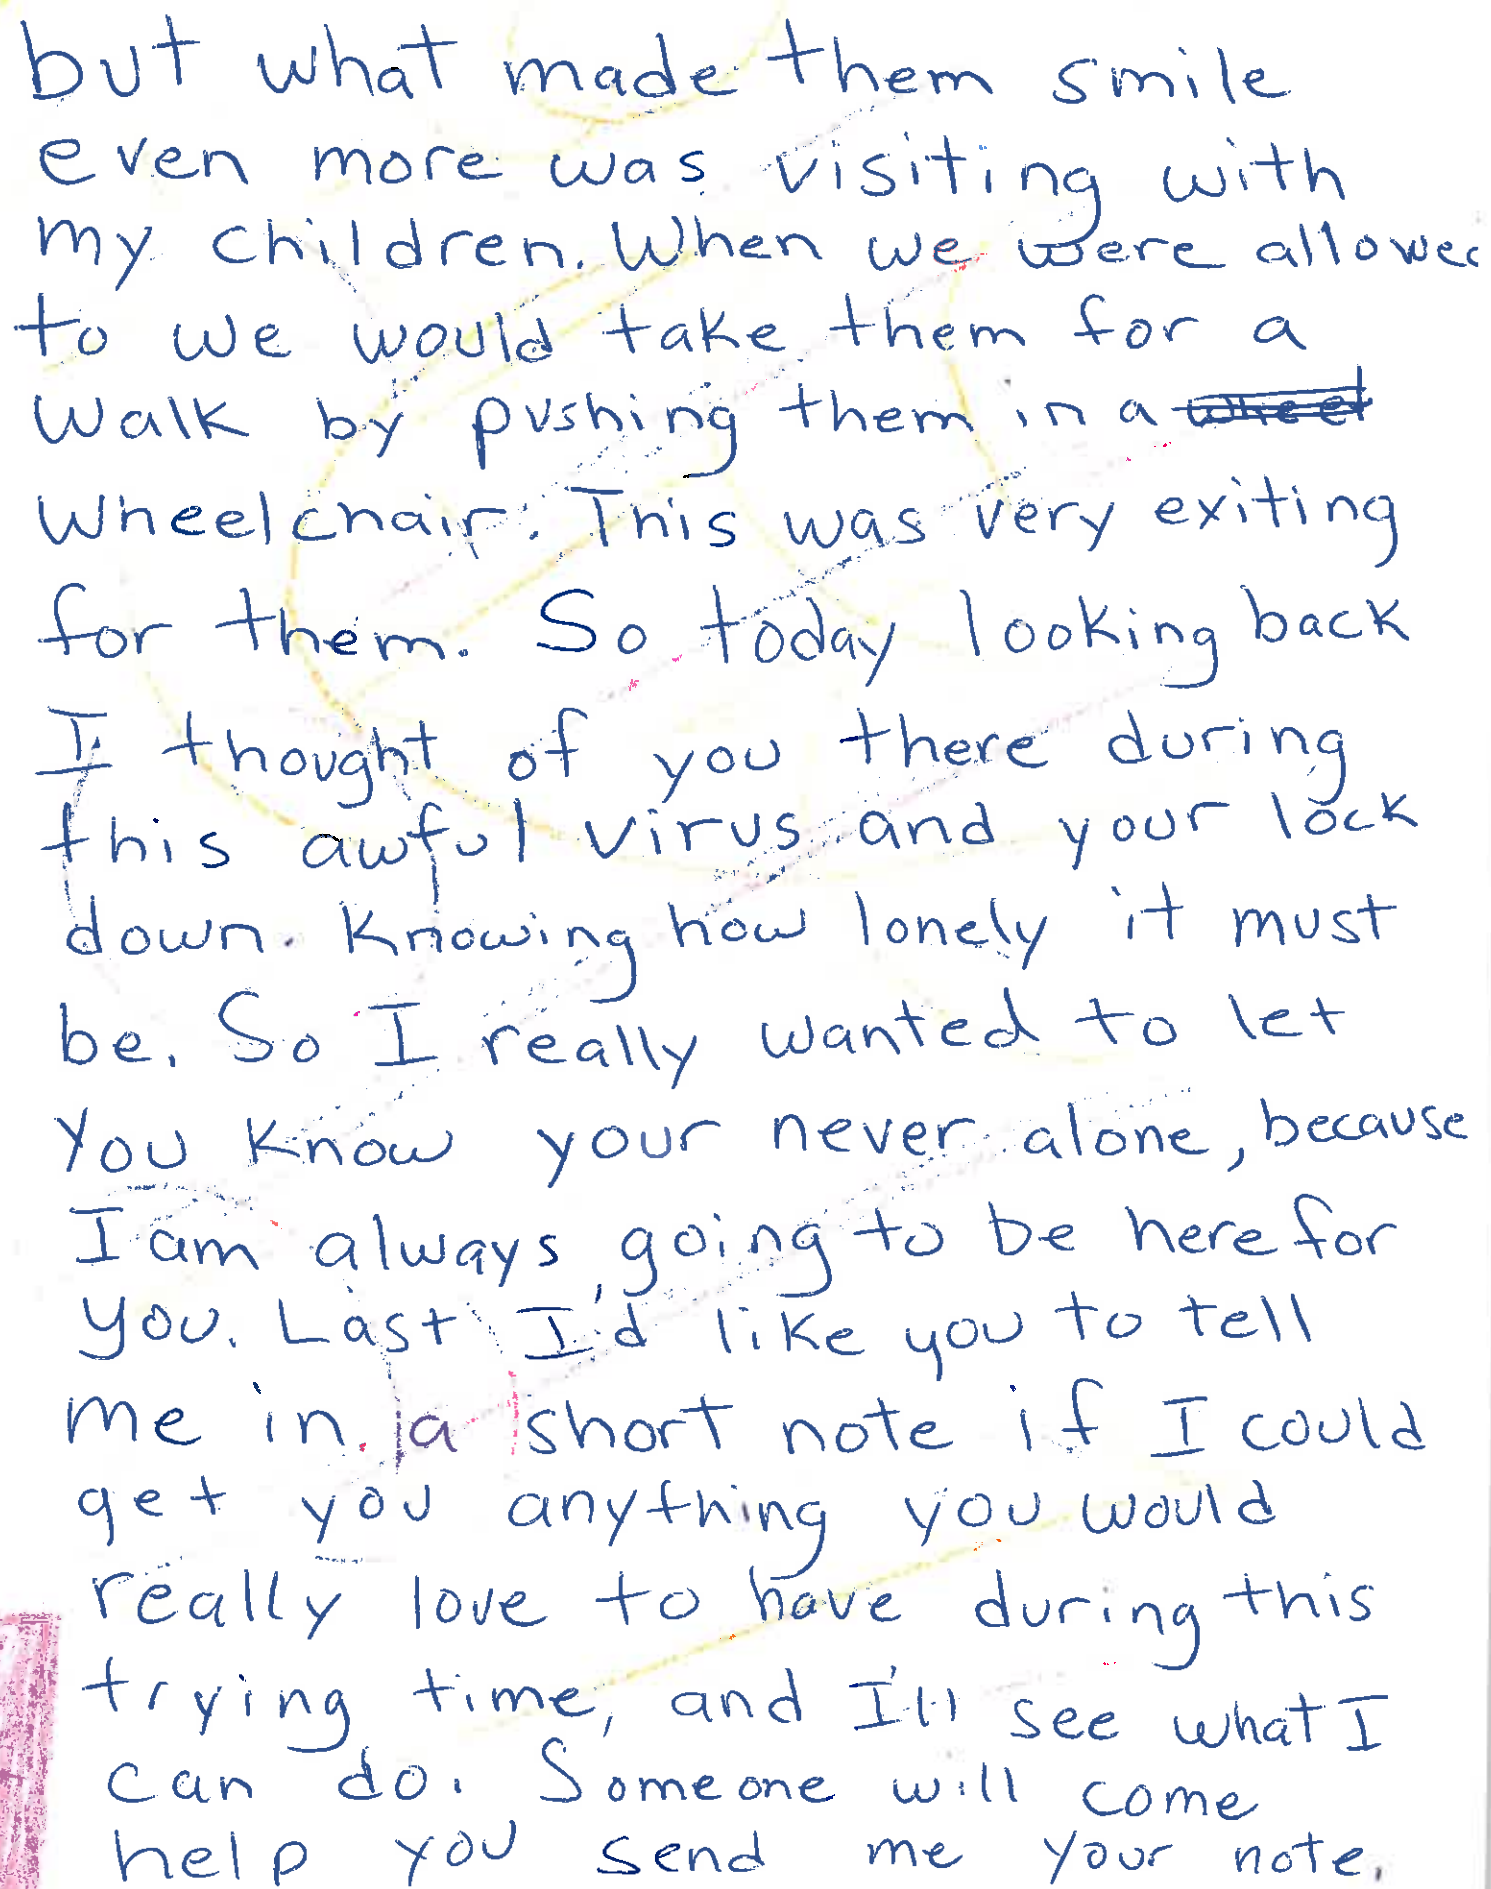 but what made them smile
even more was visiting with
my children. When we were allowed
to we would take them for a
walk by pushing them in a wheel
wheelchair. This was very exiting
for them. So today looking back
I thought of you there during
this awful virus and your lock
down. Knowing how lonely it must
be. So I really wanted to let
you know your never alone, because
I am always going to be here for
you. Last I'd like you to tell
me in a short note if I could
get you anything you would
really love to have during this
trying time, and I'll see what I
can do. Someone will come
help you send me your note.